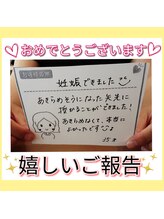 ♡おめでとうございます♡
妊娠できました
あきらめそうになった矢先に
授かることができました!
あきらめなくて、本当に
よかったです!
35才
嬉しいご報告